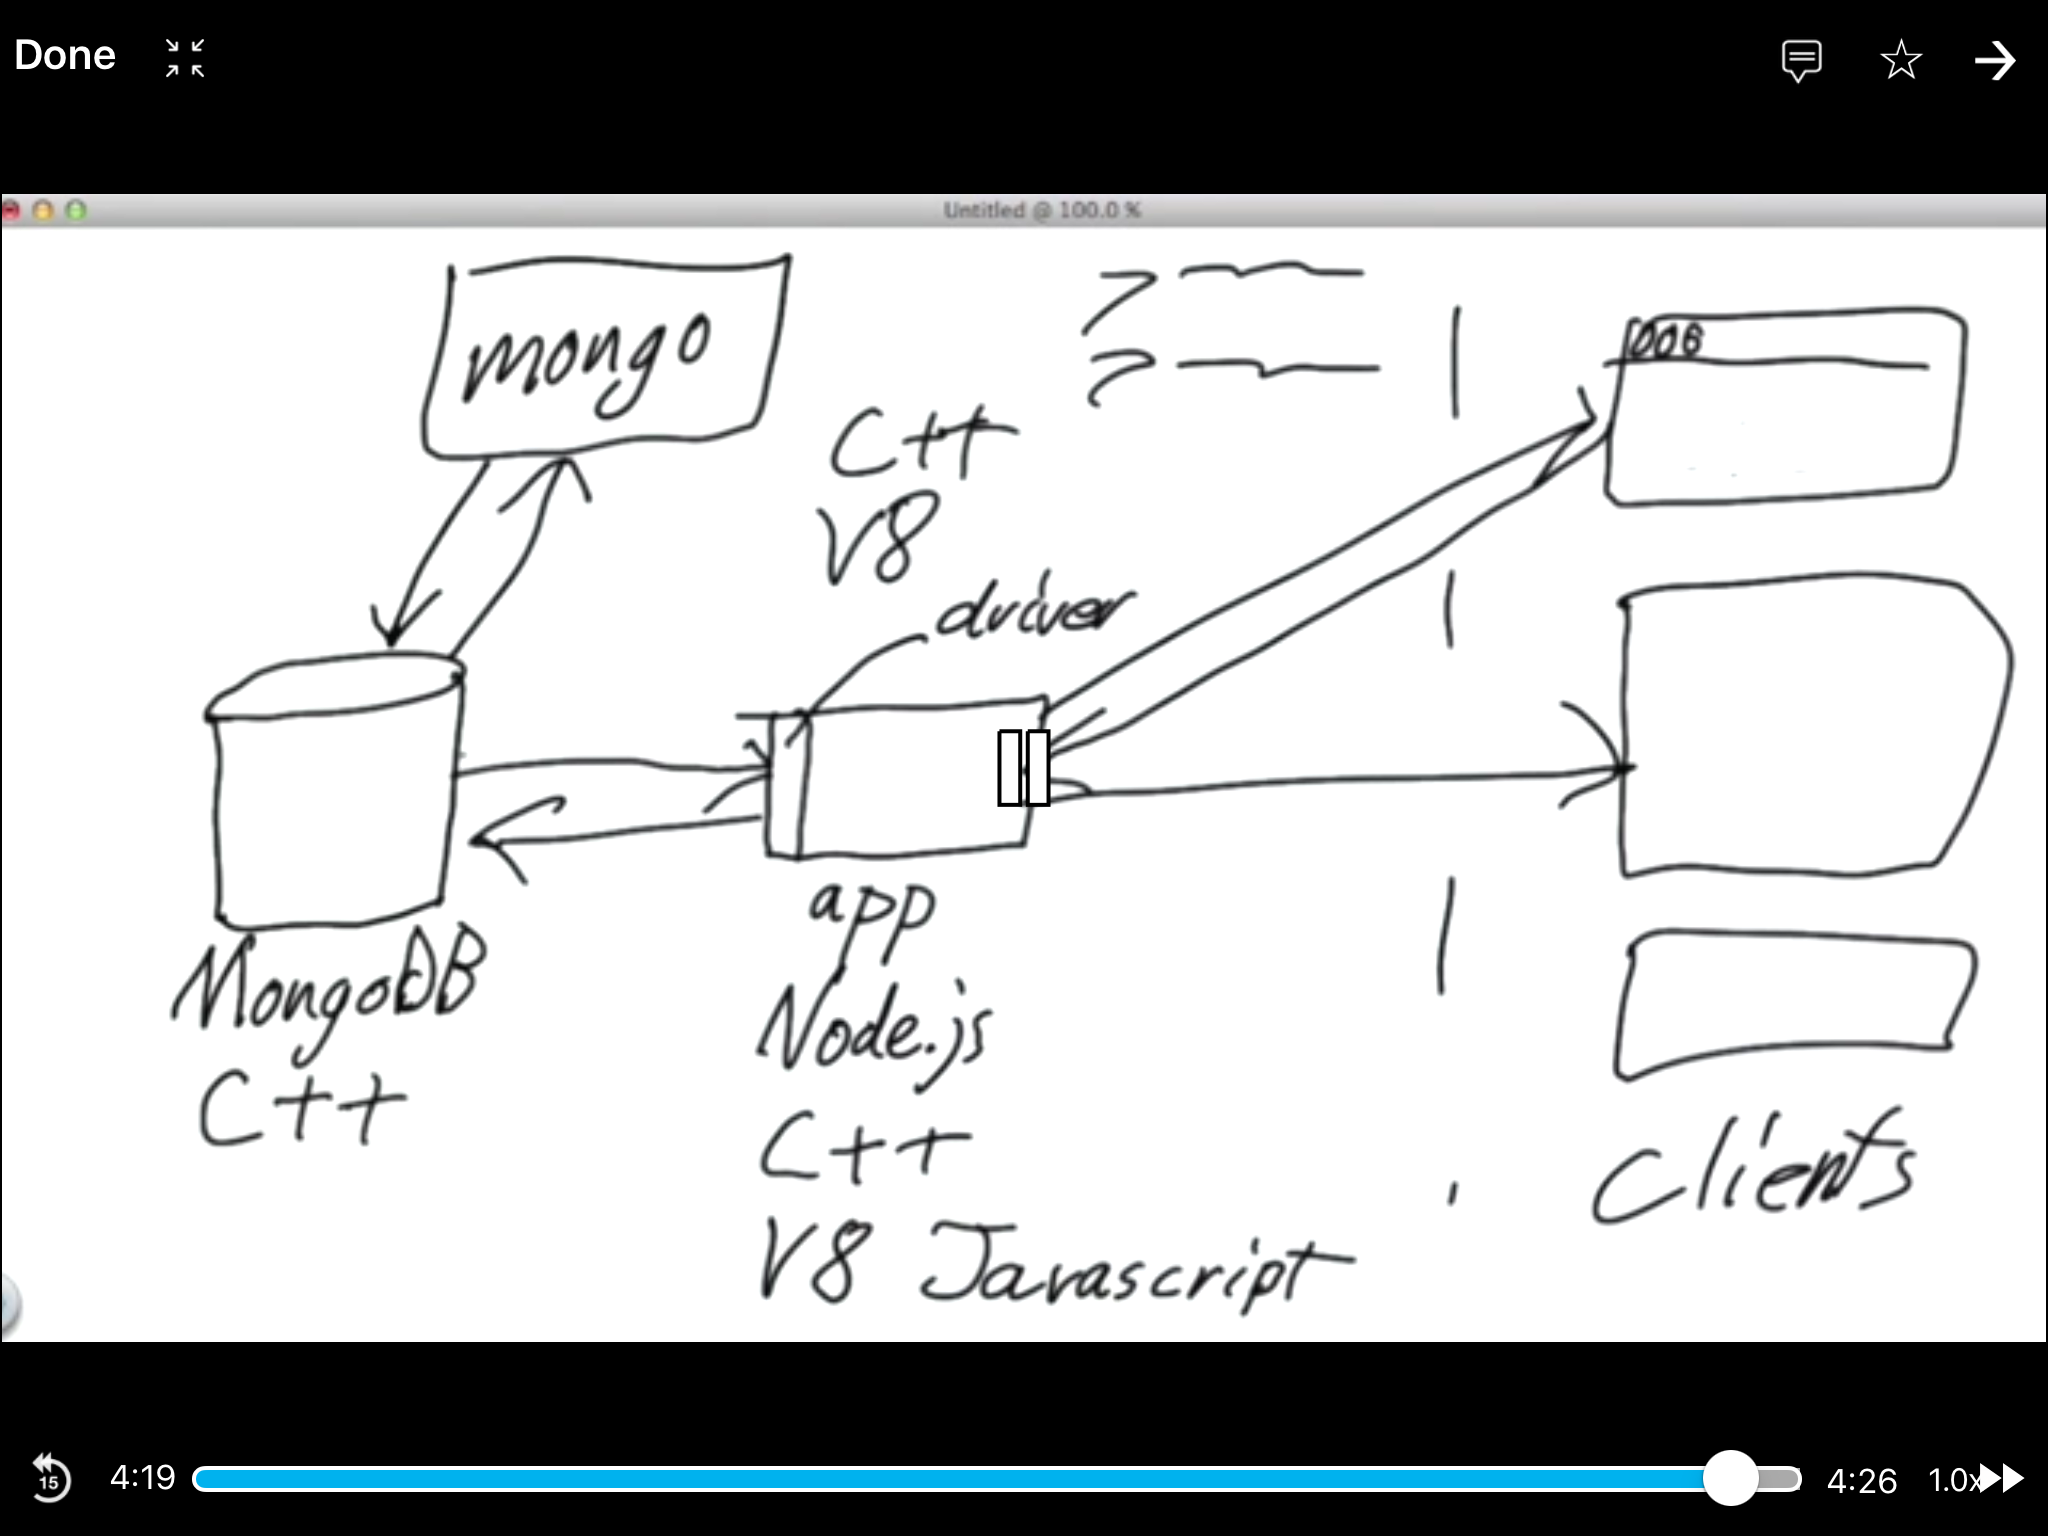 Done
Untitled @ 100.0 %
mongo
C++
V8
driver
MongoDB
C++
app
Node.js
C++
V8 Javascript
Clients
15
4:19
4:26
1.0x